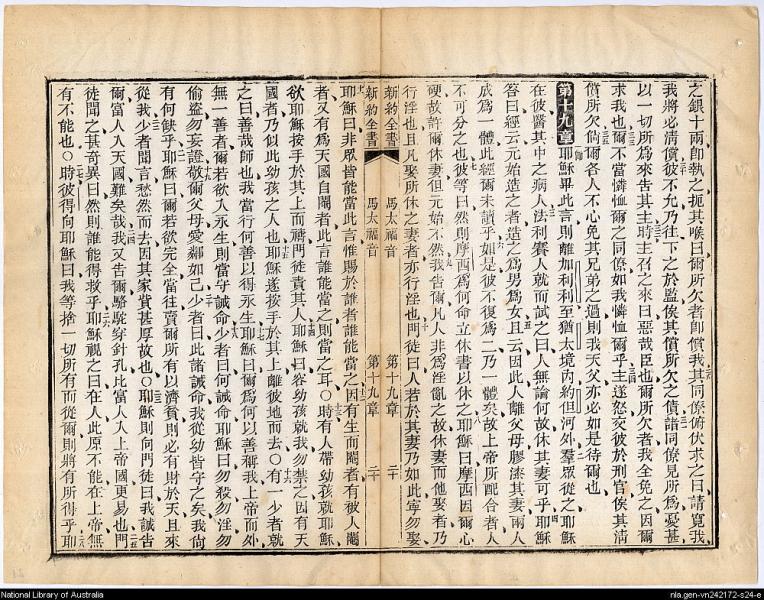 之銀十兩卽執之扼其喉曰爾所欠者卽償我其同僚俯伏求之曰請寬我
我將必清償彼不允乃往下之於監俟其償所欠之債諸同僚見所爲憂甚
以一切所爲來告其主時主召之來曰惡哉臣也爾所欠者我全免之因爾
求我也爾不當憐恤爾之同僚如我憐恤爾乎主遂怒交彼於刑官俟其清
償所欠倘爾各人不心免其兄弟之過則我天父亦必如是待爾也
第十九章 耶穌畢此言則離加利利至猶太境內約但河外羣衆從之耶穌
在彼醫其中之病人法利賽人就而試之曰人無論何故休其妻可乎耶穌
答曰經云元始造之者造之爲男爲女且云因此人離父母膠漆其妻兩人
成爲一體此經爾未讀乎如是彼不復爲二乃一體矣故上帝所配合者人
不可分之也彼等曰然則摩西爲何命立休書以休之耶穌曰摩西因爾心
硬故許爾休妻但元始不然我告爾凡人非爲淫亂之故休妻而他娶者乃
行淫也且凡娶所休之妻者亦行淫也門徒曰人若於其妻乃如此寧勿娶
新約全書 馬太福音 第十九章 二十
新約全書 馬太福音 第十九章 二十
耶穌曰非眾皆能當此言惟賜於誰者誰能當之因有生而閹者有被人閹
者又有爲天國自閹者此言誰能當之則當之耳○時有人帶幼孩就耶穌
欲耶穌按手於其上而禱門徒責其人耶穌曰容幼孩就我勿禁之因有天
國者乃似此幼孩之人也耶穌遂按手於其上離彼地而去○有一少者就
之曰善哉師也我當行何善以得永生耶穌曰爾爲何以善稱我上帝而外
無一善者爾若欲入永生則當守誡命少者曰何誡命耶穌曰勿殺勿淫勿
偷盜勿妄證敬爾父母愛鄰如己少者曰此諸誡命我從幼皆守之矣我尙
有何缺乎耶穌曰爾若欲完全當往賣爾所有以濟貧則必有財於天且來
從我少者聞言愁然而去因其家貲甚厚故也○耶穌則向門徒曰我誠告
爾富人入天國難矣哉我又告爾駱駝穿針孔比富人入上帝國更易也門
徒聞之甚奇異曰然則誰能得救乎耶穌視之曰在人此原不能在上帝無
有不能也○時彼得向耶穌曰我等捨一切所有而從爾則將有所得乎耶
National Library of Australia
nla.gen-vn242172-s24-e